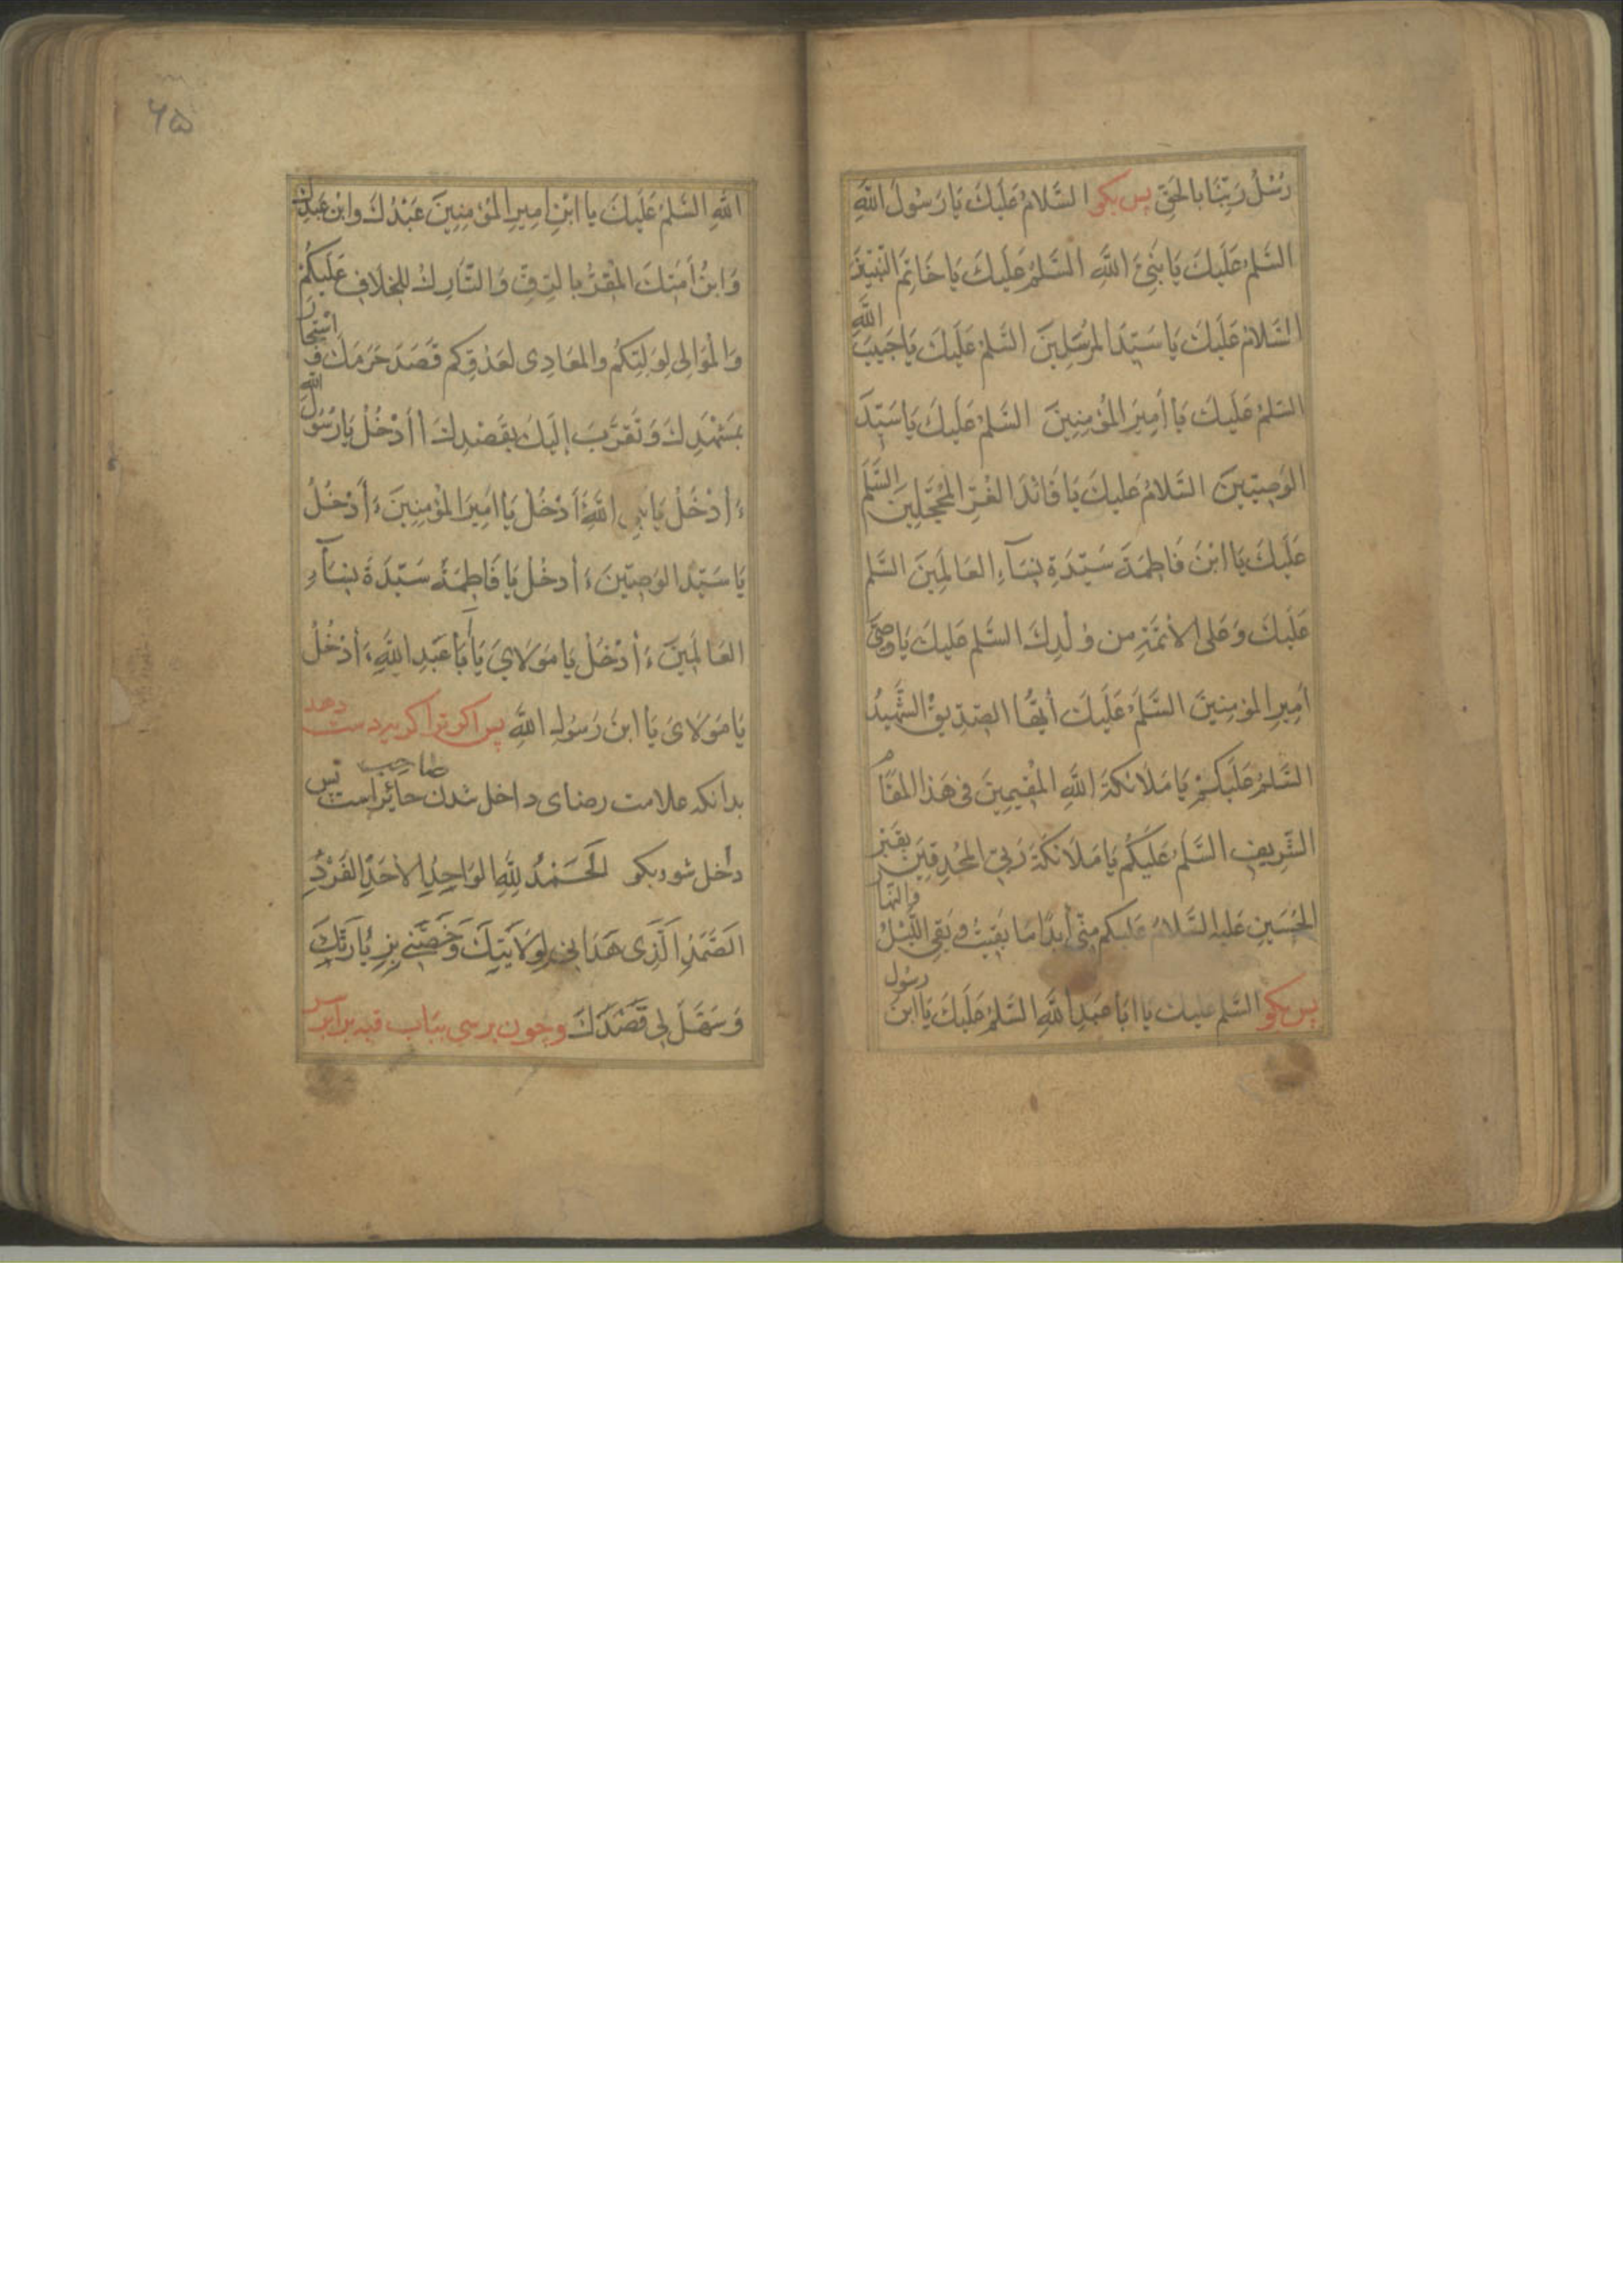 رُسُلُ رَبِّنَا بِالحَقِّ پس بکو السَّلامُ عَلَيكَ يَا رَسُولَ اللَّهِ
السَّلمُ عَلَيكَ يَا نَبِيَّ اللَّهِ السَّلمُ عَلَيكَ يَا خَاتِمَ النَّبِيّينَ
السَّلامُ عَلَيكَ يَا سَيِّدَ المُرْسَلِينَ السَّلمُ عَلَيكَ يَا حَبِيبَ اللَّهِ
السَّلمُ عَلَيكَ يَا أَمِيرَ المُؤْمِنِينَ السَّلمُ عَلَيكَ يَا سَيِّدَ
الوَصِيّينَ السَّلامُ عَلَيكَ يَا قَائدَ الغُرِّ المُحَجَّلِينَ السَّلمُ
عَلَيكَ يَا ابْنَ فَاطِمَةَ سَيِّدَةِ نِسَآءِ العَالَمِينَ السَّلم
عَلَيكَ وَعَلى الأئمَّةِ مِن وُلْدِكَ السَّلم عَليكَ يَا وَصِيَّ
أمِيرِ المؤمِنِينَ السَّلَمُ عَلَيكَ أيُّهَا الصِّدِّيقُ الشَّهِيدُ
السَّلمُ عَلَيكُمْ يَا مَلَائكَةَ اللَّهِ المُقِيمِينَ فِي هَذا المقَامِ
الشَّرِيفِ السَّلَمُ عَلَيكُم يَا مَلَائكَةَ رَبِّي المُحْدِقِينَ بِقَبْرِ
الحُسَينِ عَليه السَّلامُ عَليكم مِنّي أبَدًا مَا بَقِيتُ وَبَقِيَ اللَّيْلُ وَالنَّهَارُ
پس بکو السَّلم عليك يَا ابَا عَبدِ اللَّهِ السَّلمُ عَلَيكَ يَا ابنَ رسُول
۶۵
اللَّهِ السَّلمُ عَلَيكَ يا ابْنَ امِيرِ المُؤمِنِينَ عَبْدُكَ وَابْن عَبدِكَ
وَابنُ أمَتِكَ المُقِرُّ بِالرِّقِّ وَالتَّارِكُ لِلخِلَافِ عَلَيكُمْ
وَالمُوَالِي لِوَلِيّكُم وَالمعَادِي لعَدُوِّكم قَصَدَ حَرَمَكَ وَاسْتَجَارَ
بِمَشْهَدِكَ وَتَقَرَّبَ إلَيكَ بِقَصْدِكَ أأدْخُلُ يَا رَسُولَ اللَّهِ
ءَأدْخُلُ يَا نَبِي اللَّهِ ءَأدْخُلُ يَا امِيرَ المُؤمِنِينَ ءَأَدْخُلُ
يَا سَيِّدَ الوَصِيّينَ ءَأدخُلُ يَا فَاطِمَةُ سَيِّدَةَ نِسَآءِ
العَالَمِينَ ءَأدْخُلُ يَا مَولَايَ يَا أبَا عَبدِ اللَّهِ ءَأدْخُلُ
يَا مَولَايَ يَا ابنَ رَسُولِ اللَّهِ پس اکر ترا کریه دست دهد
بدانکه علامت رضای صاحب داخل شدن حائراست پس
داخل شو وبکو الحَمْدُ لِلَّهِ الوَاحِدِ الأَحَدِ الفَرْدِ
الصَّمَدِ الَّذِي هَدَانِي لِوِلَايَتِكَ وَخَصَّنِي بِزِيَارَتِكَ
وَسَهَّلَ لِي قَصْدَكَ وچون برسی بباب قبه برابر سر